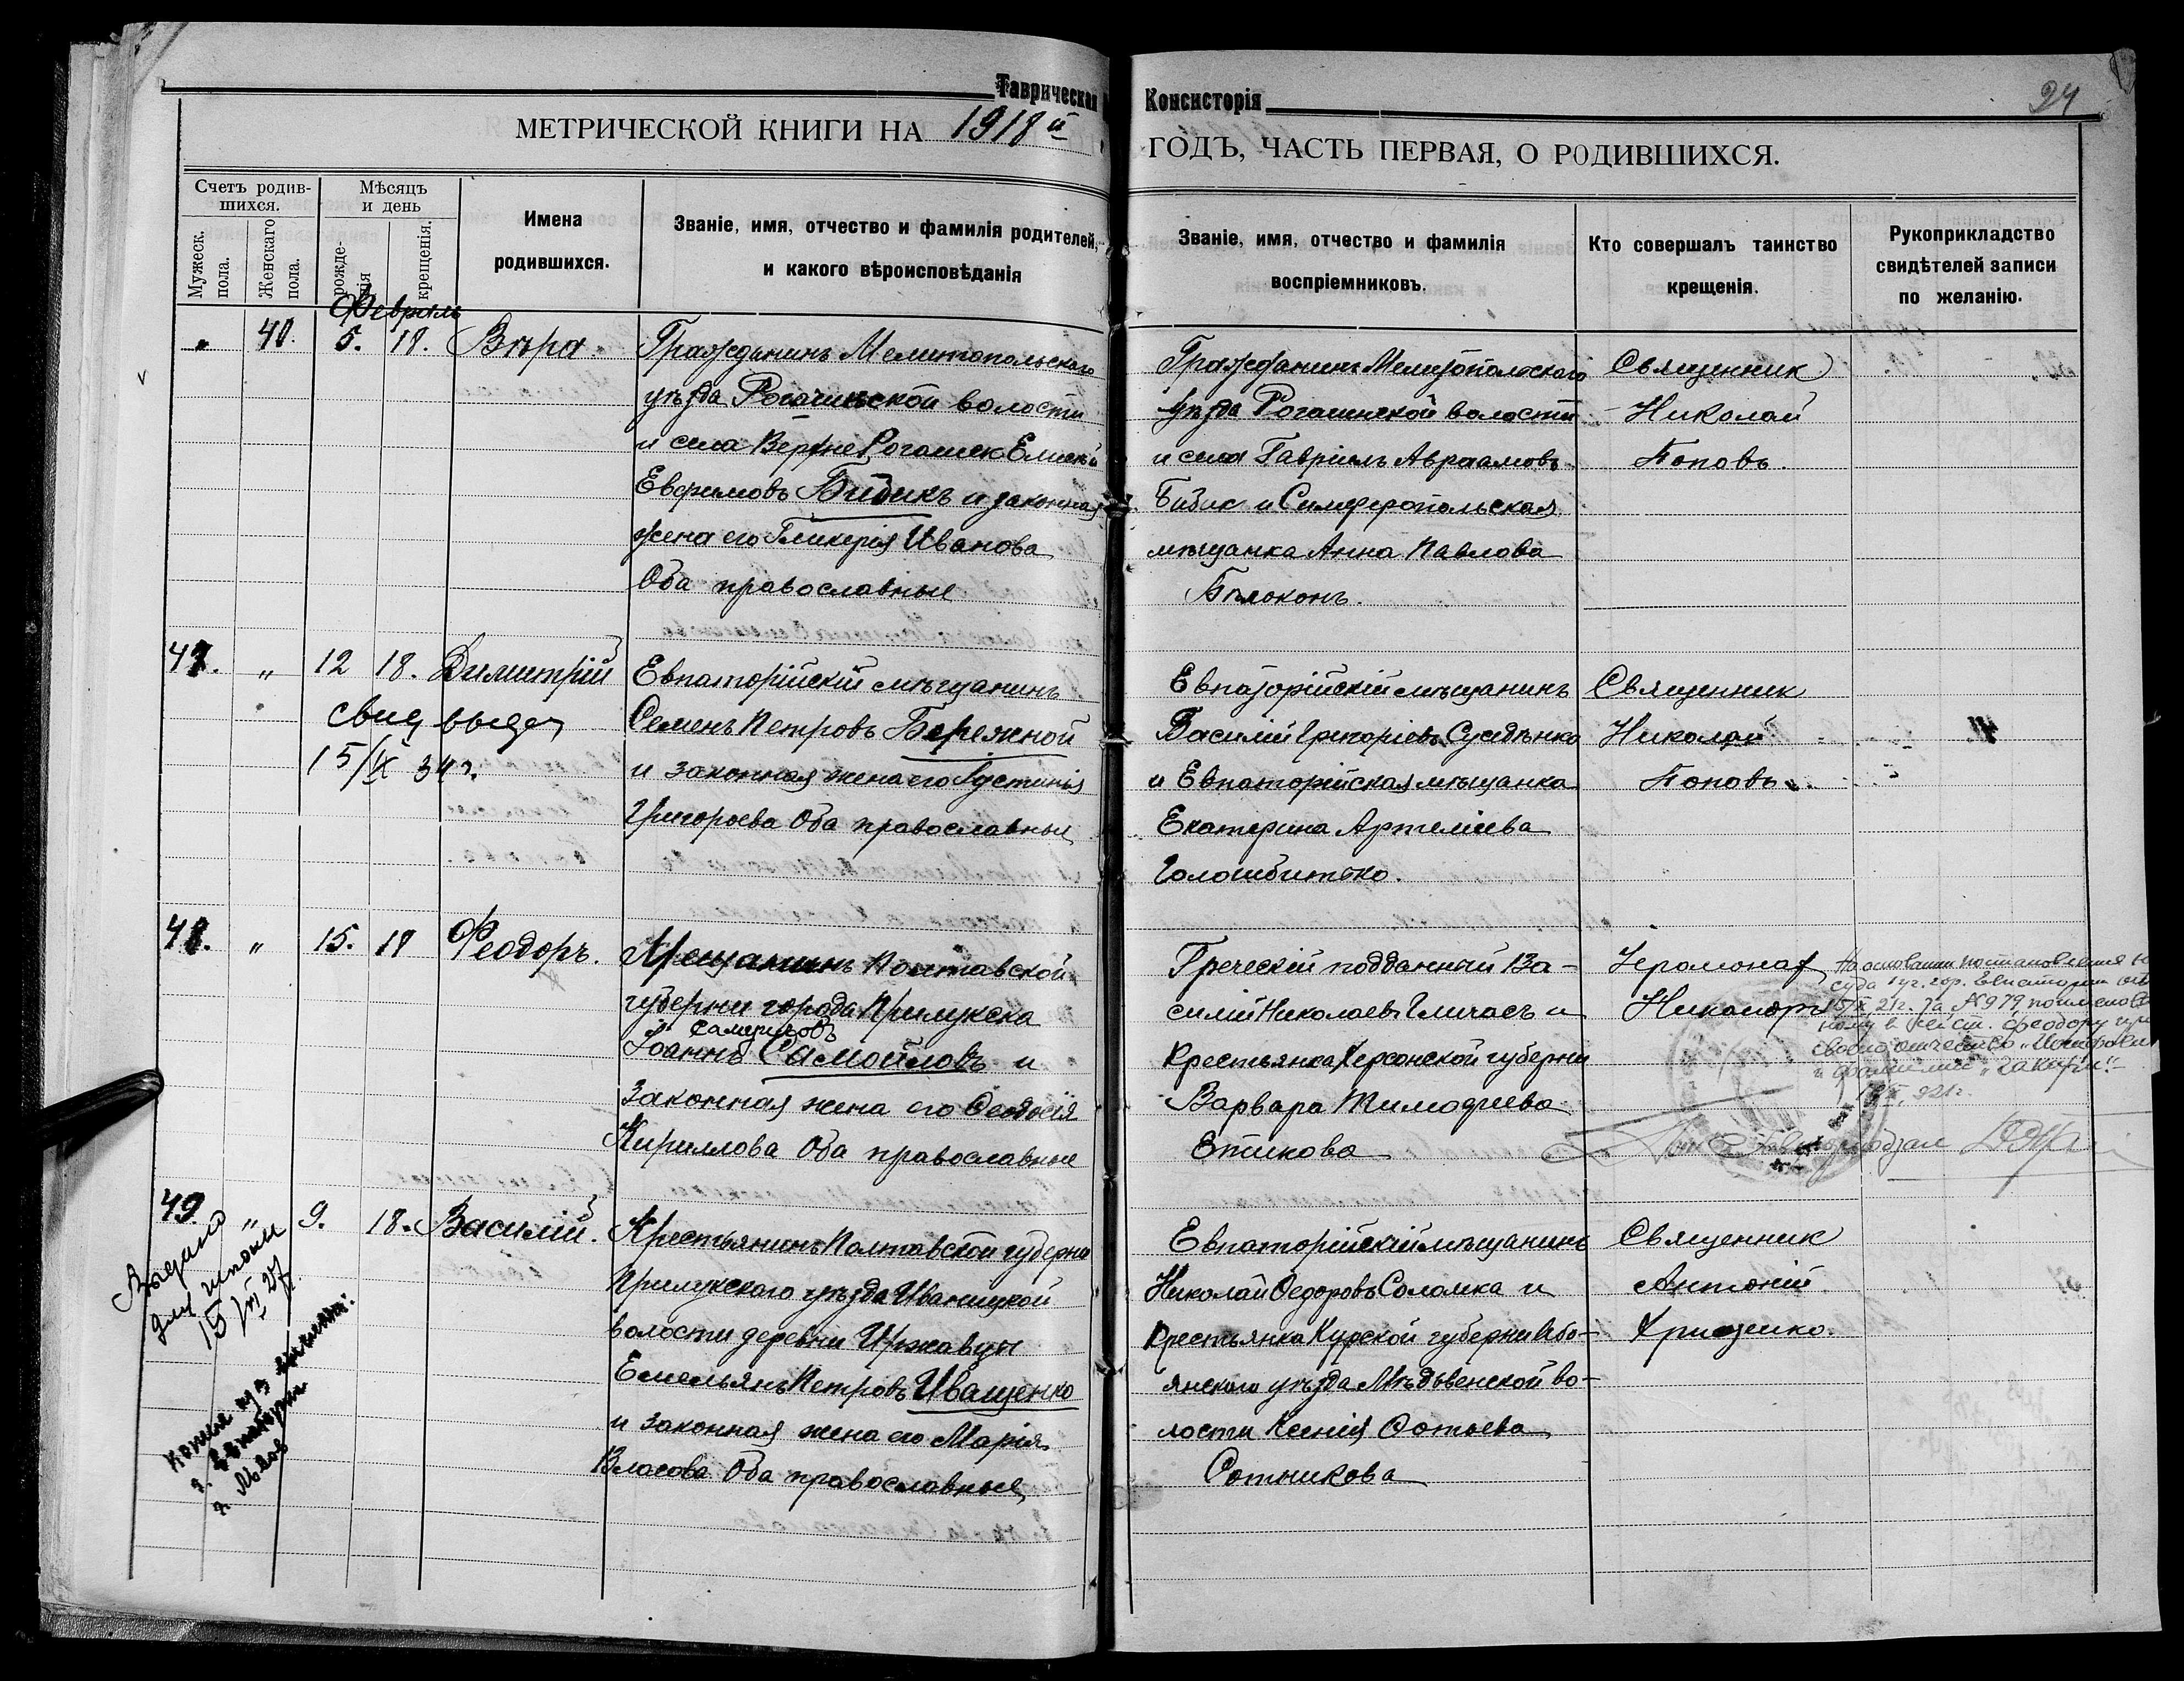 Таврическая Консисторія
24
МЕТРИЧЕСКОЙ КНИГИ НА 1918й ГОДЪ, ЧАСТЬ ПЕРВАЯ, О РОДИВШИХСЯ.
Счетъ родив-
шихся.
Мужеск.
пола.
Женскаго
пола.
Мѣсяцъ
и день
рожде-
нія
крещенія.
Имена
родившихся.
Званіе, имя, отчество и фамилія родителей,
и какого вѣроисповѣданія
Званіе, имя, отчество и фамилія
воспріемниковъ.
Кто совершалъ таинство
крещенія.
Рукоприкладство
свидѣтелей записи
по желанію.
Февраль
„ 40. 5. 18. Вѣра
Гражданинъ Мелитопольскаго
уѣзда Рогачинской волости
и села Верхне Рогачик
Евфимовъ Бибикъ и законная
жена его Гликерія Иванова
Оба православные
Гражданинъ Мелитопольскаго
уѣзда Рогачинской волости
и села Гавріилъ Авраамовъ
Бибик и Симферопольская
мѣщанка Анна Павлова
Бѣлоконь.
Священник
Николай
Поповъ.
47. „ 12 18. Димитрій
свид выдан
15/IX 34 г.
Евпаторійскій мѣщанинъ
Семенъ Петровъ Бережной
и законная жена его Іустинія
Григорьева Оба православные
Евпаторійскій мѣщанинъ
Василій Григоріевъ
и Евпаторійская мѣщанка
Екатерина
Священник
Николай
Поповъ.
48. „ 15. 18 Феодоръ.
Мѣщанинъ Полтавской
губерни города Прилукска
Іоаннъ Самойловъ и
законная жена его Феодосія
Кириллова Оба православные
Греческій подданный Ва-
силій Николаевъ и
крестьянка Херсонской губерни
Варвара Тимофеева
Іеромонах
Никаноръ
На основании постановления
суда гор. Евпатории
за № 979
Феодору
отчество
и фамилию
49. „ 9. 18. Василій.
Выдано
для
15/VI 27
Копия
Крестьянинъ Полтавской губерни
Прилукского уѣзда Иваницкой
волости деревни Иржавцы
Емельянъ Петровъ Иващенко
и законная жена его Марія
Власова Оба православные
Евпаторійскій мѣщанинъ
Николай Федоровъ Соломка и
крестьянка Курской губерни Обо-
янского уѣзда Медвенской во-
лости Ксенія Фотьева
Сотникова
Священник
Антоній